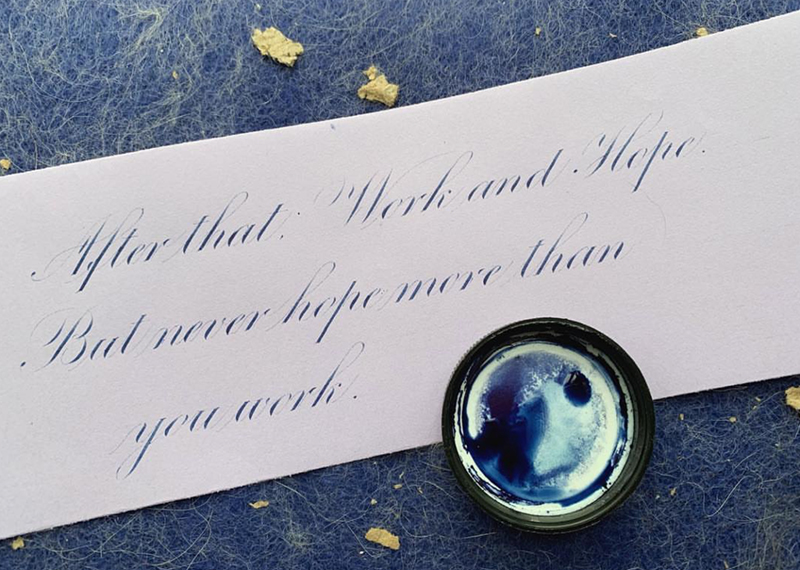 After that, Work and Hope.
But never hope more than
you work.